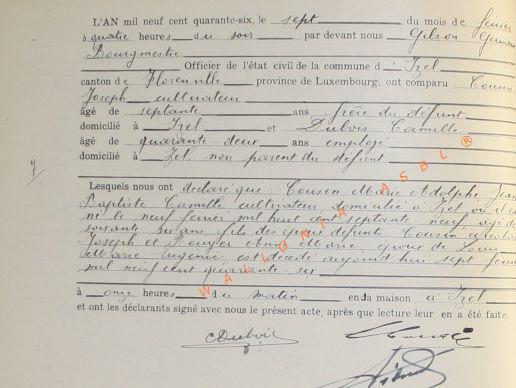 L'AN mil neuf cent quarante-six, le sept du mois de février
à quatre heures du soir par devant nous Gilson Germain
Bourgmestre
Officier de l'état civil de la commune d'Izel
canton de Florenville province de Luxembourg, ont comparu Cousin
Joseph cultivateur
âgé de septante ans frère du défunt
domicilié à Izel et Dubois Camille
âgé de quarante-deux ans employé
domicilié à Izel non parent du défunt
7
Lesquels nous ont déclaré que Cousin Marie Adolphe Jean
Baptiste Camille cultivateur domicilié à Izel où il est
né le neuf février mil huit cent septante neuf âgé de
soixante six ans, fils des époux défunts Cousin Nicolas
Joseph et Anne Marie époux de
Marie Eugénie, est décédé aujourd'hui sept février
mil neuf cent quarante-six
à onze heures du matin en sa maison à Izel
et ont les déclarants signé avec nous le présent acte, après que lecture leur en a été faite.
CDubois
WALLONIA ASBL ®